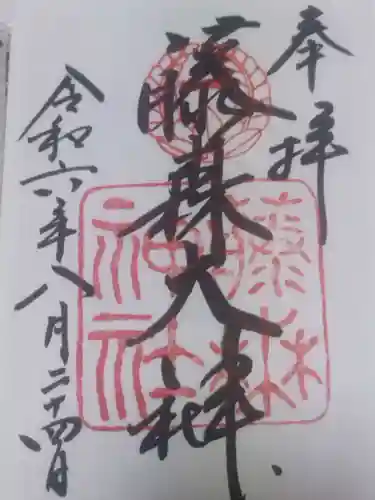 奉拝
藤森大神
令和六年八月二十四日
藤森
神社